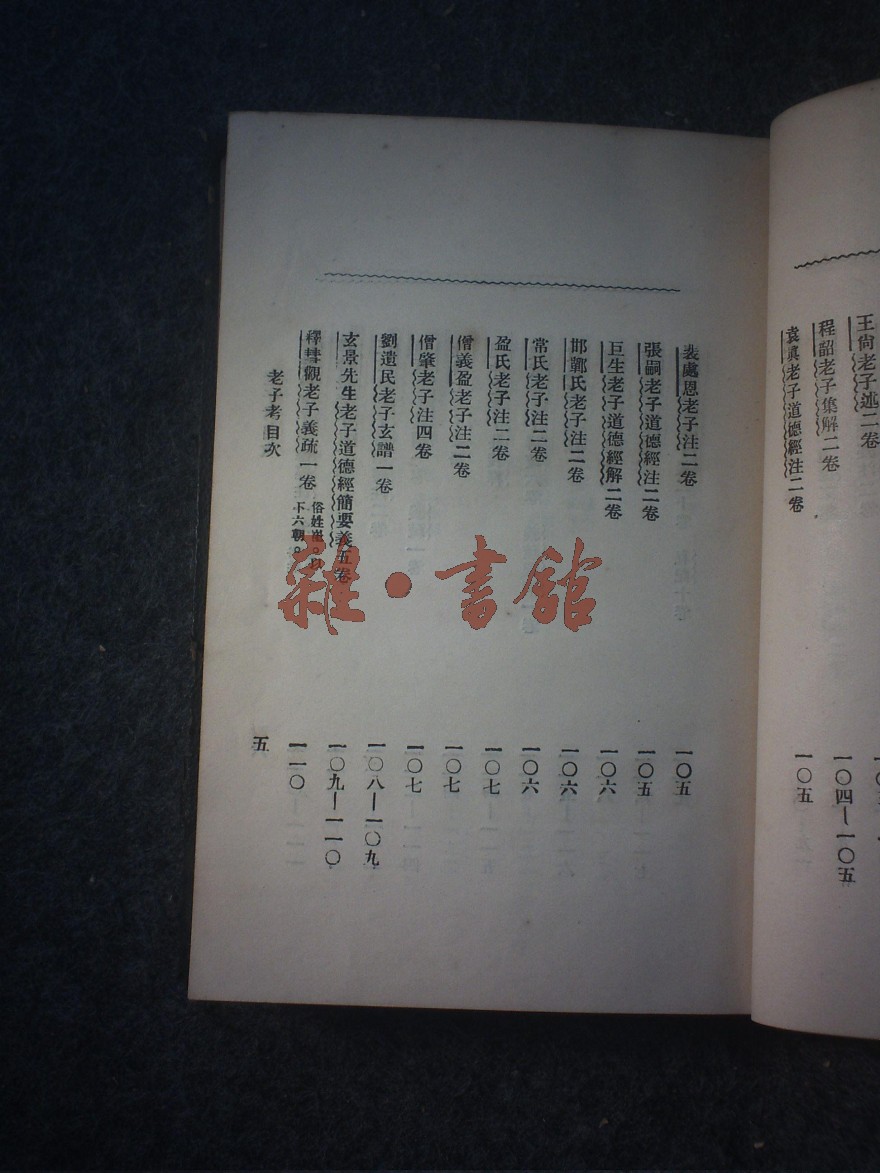 王尙老子述二卷
程韶老子集解二卷
一〇四—一〇五
袁眞老子道德經注二卷
一〇五
裴處恩老子注二卷
一〇五
張嗣老子道德經注二卷
一〇五
巨生老子道德經解二卷
一〇六
邯鄲氏老子注二卷
一〇六
常氏老子注二卷
一〇六
盈氏老子注二卷
一〇七
僧義盈老子注二卷
一〇七
僧肇老子注四卷
一〇七
劉遺民老子玄譜一卷
一〇八—一〇九
玄景先生老子道德經簡要義五卷
一〇九—一一〇
釋慧觀老子義疏一卷
俗姓崔。以
下六朝。
一一〇
老子考目次
五
雜·書館